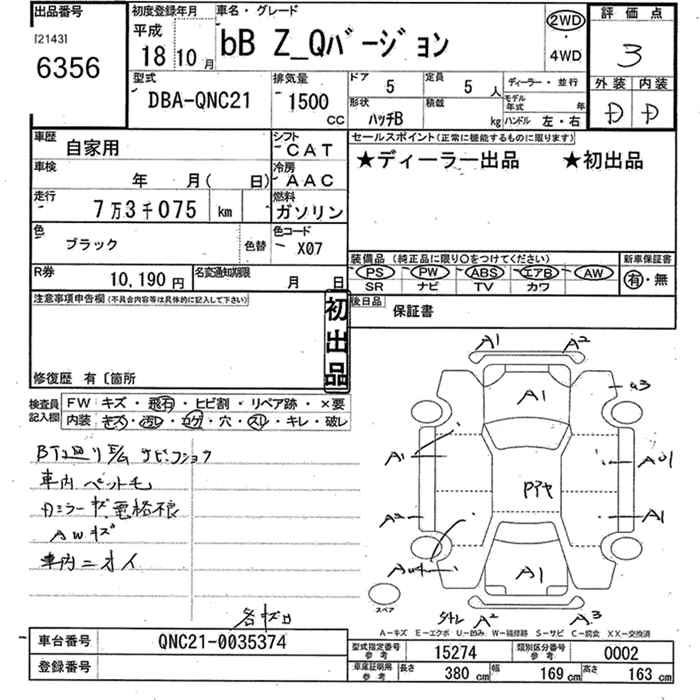 出品番号
[2143]
6356
初度登録年月
平成
18 10 月
車名・グレード
bB Z_Qバージョン
2WD
・
4WD
評価点
3
外装 内装
D D
型式
DBA-QNC21
排気量
1500
CC
ドア
5
定員
5 人
形状
ハッチB
積載
kg
ディーラー・並行
モデル年式 年
ハンドル 左・右
車歴
自家用
シフト
CAT
車検
年 月( 日)
冷房
AAC
走行
7万3千075 km
燃料
ガソリン
色
ブラック
色替
色コード
X07
R券
10,190 円
名変通知期限
月 日
セールスポイント(正常に機能するものに限ります)
★ディーラー出品 ★初出品
装備品 (純正品に限り○をつけてください)
PS PW ABS エアB AW
SR ナビ TV カワ
新車保証書
有・無
後日品
保証書
注意事項申告欄(不具合内容等は具体的に記入して下さい)
初出品
修復歴 有〔箇所
検査員記入欄
FW キズ・飛石・ヒビ割・リペア跡・×要
内装 キズ・汚レ・コゲ・穴・スレ・キレ・破レ
BT廻りE/G サビコショウ
車内ペット毛
Dミラーキズ、電格不良
AWキズ
車内ニオイ
各キズ凹
A1
A2
A1
a3
A1
AU1
Pアヤ
A2
A1
AU4
A1
スペア
A2
A3
A-キズ E-エクボ U-凹み W-補修跡 S-サビ C-腐食 XX-交換済
車台番号
QNC21-0035374
登録番号
型式指定番号
参考
15274
類別区分番号
参考
0002
車庫証明用
参考
長さ
380 cm
幅
169 cm
高さ
163 cm